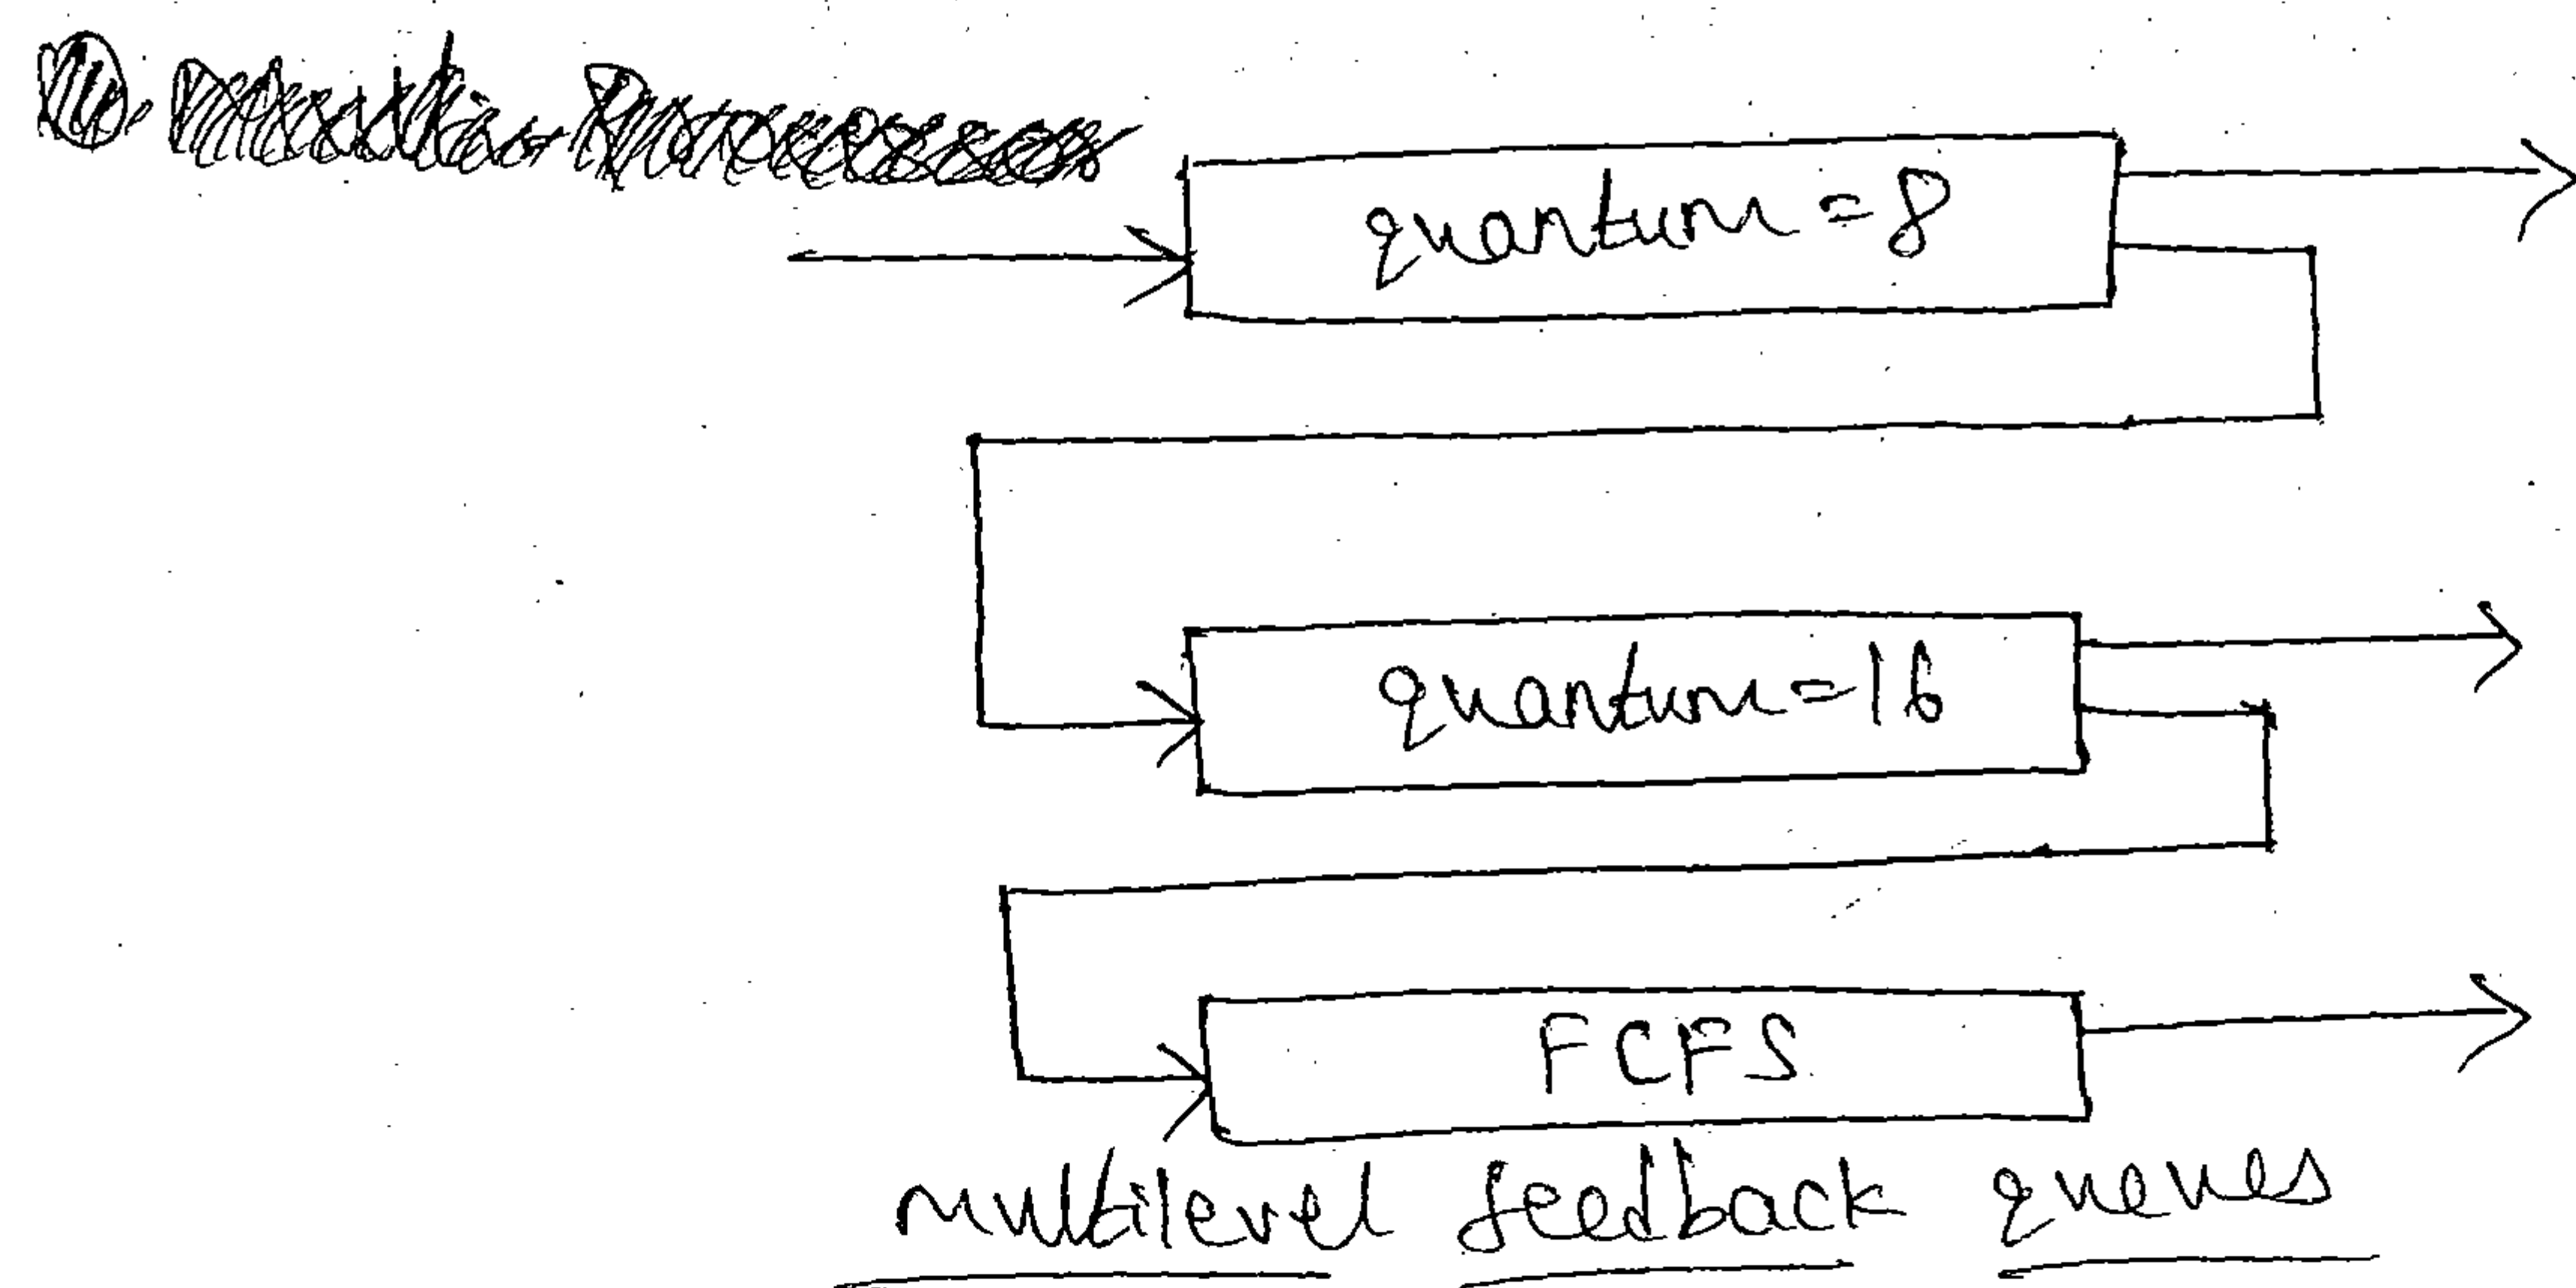 quantum = 8
quantum = 16
FCFS
multilevel feedback queues